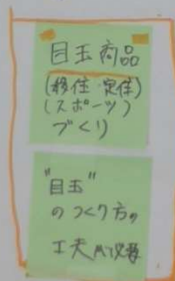 目玉商品
(移住・定住)
(スポーツ)
づくり
"目玉"
のつくり方の
工夫が必要